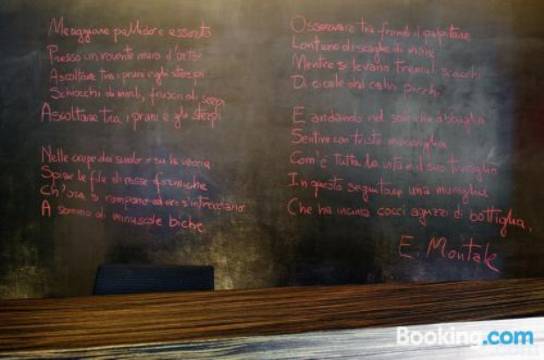 Meriggiare pallido e assorto
Presso un rovente muro d'orto
Ascoltare tra i pruni e gli sterpi
Schiocchi di merli, frusci di serpi
Ascoltare tra i pruni e gli sterpi
Nelle crepe del suolo o su la veccia
Spiar le file di rosse formiche
Ch'ora si rompono ed ora s'intrecciano
A sommo di minuscole biche
Osservare tra frondi il palpitare
Lontano di scaglie di mare
Mentre si levano tremuli scricchi
Di cicale dai calvi picchi
E andando nel sole che abbaglia
Sentire con triste meraviglia
Com'è tutta la vita e il suo travaglio
In questo seguitare una muraglia
Che ha in cima cocci aguzzi di bottiglia.
E. Montale
Booking.com